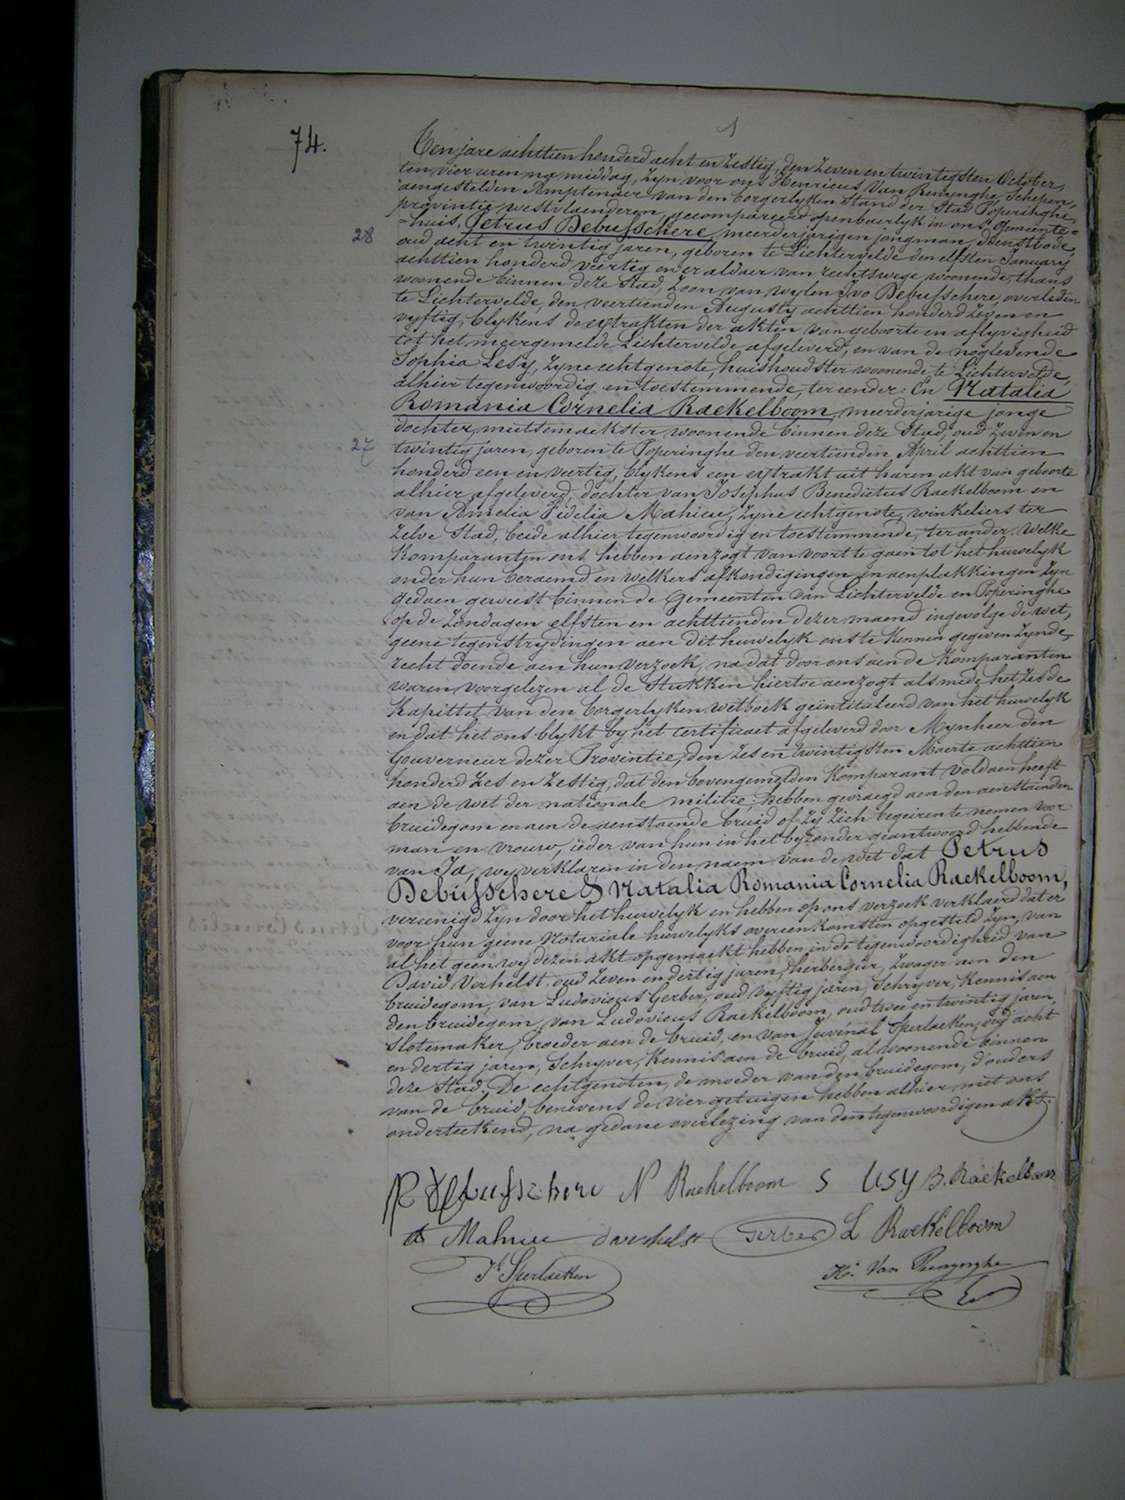 1
74.
Ten jare achttien honderd acht en zestig, den zeven en twintigsten October,
ten vier uren na middag, zyn voor ons Henricus Van Renynghe, Schepen,
aengestelden Amptenaer van den borgerlyken stand der Stad Poperinghe,
provintie westvlaenderen, gecompareerd openbaerlyk in ons gemeente=
=huis, Petrus Debusschere, meerderjarigen jongman, dienstbode,
28
oud acht en twintig jaren, geboren te Lichtervelde den elfsten January
achttien honderd veertig en er aldaer van rechtswege woonende, thans
woonende binnen deze stad, zoon van wylen Ivo Debusschere, overleden
te Lichtervelde, den veertienden Augusty achttien honderd zeven en
vyftig, blykens de extrakten der akten van geboorte en aflyvigheid
tot het meergemelde Lichtervelde afgeleverd, en van de noglevende
Sophia Lesy, zyne echtgenote, huishoudster woonende te Lichtervelde,
alhier tegenwoordig en toestemmende, ter eender: En Natalia
Romania Cornelia Raekelboom, meerderjarige jonge
dochter, mutsemaekster, woonende binnen deze Stad, oud zeven en
27
twintig jaren, geboren te Poperinghe den veertienden April achttien
honderd een en veertig, blykens een extrakt uit haren akt van geboorte
alhier afgeleverd, dochter van Josephus Benedictus Raekelboom en
van Amelia Fidelia Mahieu, zyne echtgenote, winkeliers ter
zelve Stad, beide alhier tegenwoordig en toestemmende, ter ander. Welke
Komparanten ons hebben aenzogt van voort te gaen tot het huwelyk
onder hun beraemd en welkers afkondigingen en aenplakkingen zyn
gedaen geweest binnen de Gemeenten van Lichtervelde en Poperinghe
op de Zondagen elfsten en achttienden dezer maend ingevolge de wet,
geene tegenstrydingen aen dit huwelyk ons te kennen gegeven zynde,
recht doende aen hun verzoek, na dat door ons aen de komparanten
waren voorgelezen al de Stukken hiertoe aenzogt als mede het zesde
Kapittel van den borgerlyken wetboek geïntituleerd van het huwelyk
en dat het ons blykt by het certificaet afgeleverd door Mynheer den
Gouverneur dezer Provintie, den zes en twintigsten Maerte achttien
honderd zes en zestig, dat den bovengemelden Komparant voldaen heeft
aen de wet der nationale militie: hebben gevraegd aen den aenstaenden
bruidegom en aen de aenstaende bruid of zy zich begeiren te nemen voor
man en vrouw, ieder van hun in het byzonder geantwoord hebbende
van Ja, wy verklaren in den naem van de wet dat Petrus
Debusschere & Natalia Romania Cornelia Raekelboom,
vereenigd zyn door het huwelyk en hebben op ons verzoek verklaerd dat er
voor hun geene Notariale huwelyks overeenkomsten opgesteld zyn, van
al het geen wy dezen akt opgemaekt hebben in de tegenwoordigheid van
David Verhelst, oud zeven en dertig jaren, herbergier, zwager aen den
bruidegom, van Ludovicus Gerber, oud vyftig jaren, Schryver, kennis aen
den bruidegom, van Ludovicus Raekelboom, oud twee en twintig jaren,
slotemaker, broeder aen de bruid, en van Juvénal Sperlaeken, oud acht
en dertig jaren, Schryver, kennis aen de bruid, al woonende binnen
deze Stad. De echtgenoten, de moeder van den bruidegom, d'ouders
van de bruid, benevens de vier getuigen hebben alhier met ons
onderteekend, na gedane overlezing van den tegenwoordigen akt.
P Debusschere N Raekelboom S LESY B. Raekelboom
A Mahieu d verhelst Gerber L Raekelboom
Jl Sperlaeken Hi. Van Renynghe